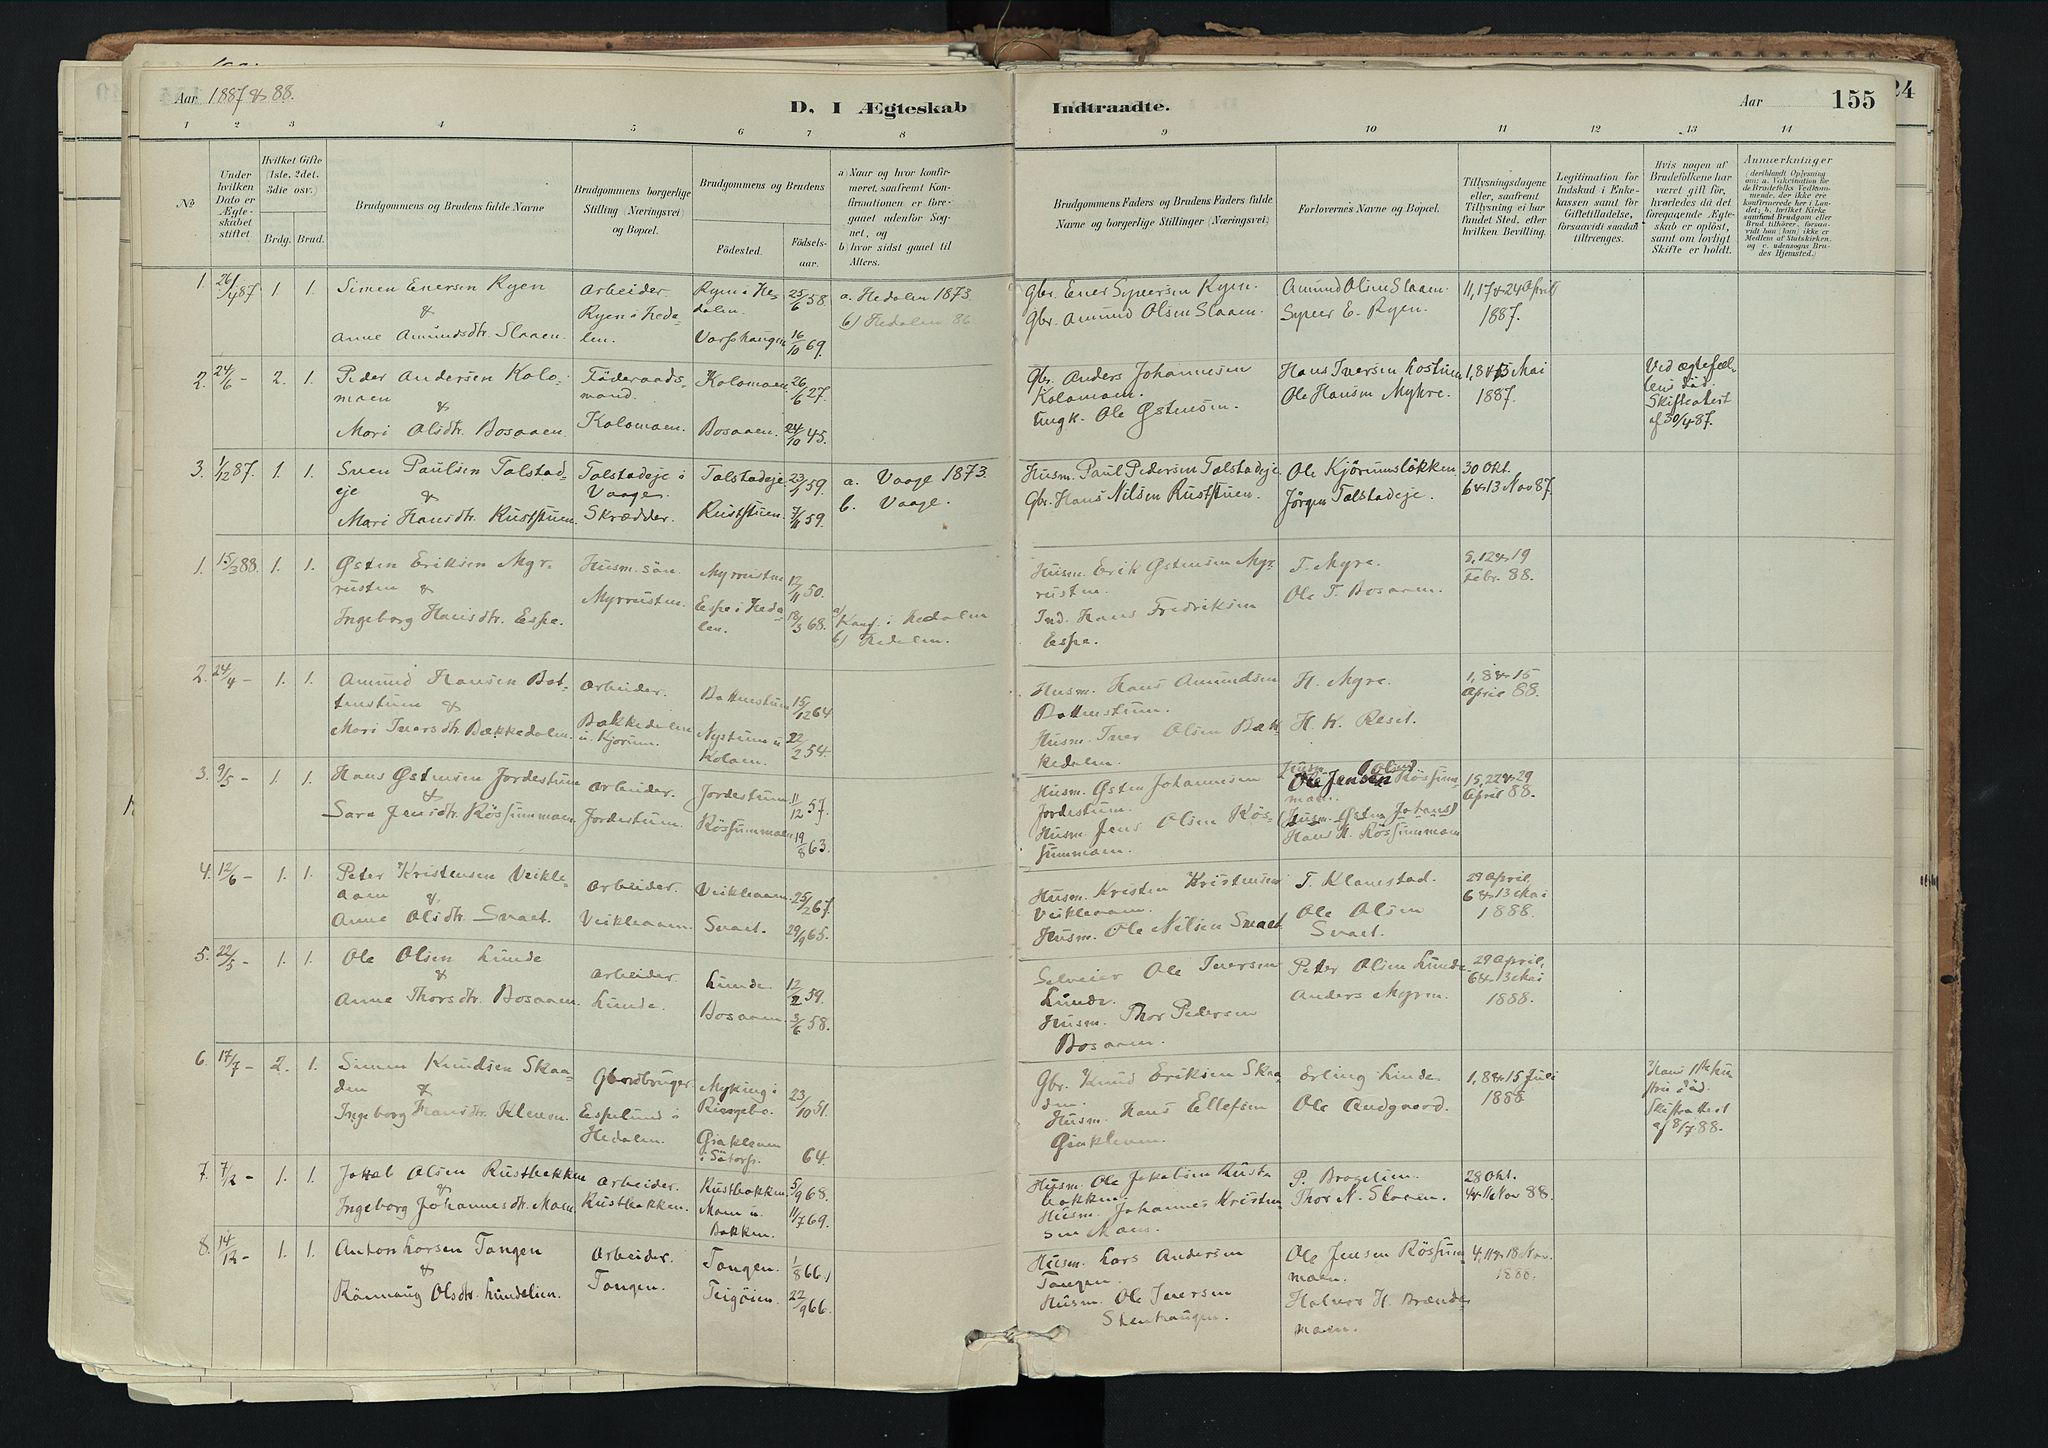 Aar 1887 & 88.
D. I Ægteskab Indtraadte.
Aar 155
24
1 2 3 4 5 6 7 8 9 10 11 12 13 14
No
Under hvilken Dato er Ægteskabet stiftet.
Hvilket Gifte (1ste, 2det, 3die osv.)
Brdg. Brud.
Brudgommens og Brudens fulde Navne
Brudgommens borgerlige Stilling (Næringsvei) og Bopæl.
Brudgommens og Brudens
Fødested.
Fødselsaar.
a) Naar og hvor konfirmeret, saafremt Konfirmationen er foregaaet udenfor Sognet, og
b) hvor sidst gaaet til Alters.
Brudgommens Faders og Brudens Faders fulde Navne og borgerlige Stillinger (Næringsvei).
Forlovernes Navne og Bopæl.
Tillysningsdagene eller, saafremt Tillysning ei har fundet Sted, efter hvilken Bevilling.
Legitimation for Indskud i Enkekassen samt for Giftetilladelse, forsaavidt saadan tiltrænges.
Hvis nogen af Brudefolkene har været gift før, hvorledes da det foregaaende Ægteskab er opløst, samt om lovligt Skifte er holdt.
Anmærkninger
1. 26/4 87. 1. 1. Simen Enersen Ryen
&
Anne Amundsdtr. Slaaen.
Arbeider.
Ryen i Hedalen.
Ryen i Hedalen. 25/6 58.
16/10 69.
a. Hedalen 1873.
b) Hedalen 86
Gbr. Ener Syversen Ryen.
Gbr. Amund Olsen Slaaen.
Amund Olsen Slaaen.
Syver E. Ryen.
11, 17 & 24 April
1887.
2. 24/6 - 2. 1. Peder Andersen Kolomaen
&
Mari Olsdtr. Bosaaen.
Föderaadsmand.
Kolomaen.
Kolomaen. 26/6 27.
Bosaaen. 24/10 45.
Gbr. Anders Johannesen
Kolomaen.
Ungk. Ole Østensen.
Ole Hansen Myhre.
1, 8 & 15 Mai
1887.
Ved ægtefællens död.
Skifteattest
af 30/4 87.
3. 1/12 87. 1. 1. Sven Paulsen Tolstadeje
&
Mari Hansdtr. Ruststuen.
Tolstadeje i
Vaage.
Skrædder.
Tolstadeje. 23/1 59.
Ruststuen. 7/11 59.
a. Vaage 1873.
b. Vaage.
Husm. Paul Pedersen Tolstadeje
Gbr. Hans Nilsen Ruststuen.
Ole Kjörumslökken
Jörgen Tolstadeje.
30 Okt.
6 & 13 Nov 87.
1. 15/3 88. 1. 1. Østen Eriksen Myrrusten
&
Ingeborg Hansdtr. Espe.
Husm. sön
Myrrusten.
Myrrusten 12/11 50.
Espe i Hedalen. 18/3 68.
a) Konf. i Hedalen
b) Hedalen.
Husm. Erik Østensen Myrrusten.
Ind. Hans Fredriksen
Espe.
T. Myre.
Ole T. Bosaaen.
5, 12 & 19
Febr. 88.
2. 24/4 - 1. 1. Amund Hansen
&
Mari Iversdtr. Bækkedalen.
Arbeider.
Bækkedalen
u. Kjörum.
15/12 64
Nystuen u
Koloen. 22/2 54.
Husm. Hans Amundsen
Husm. Iver Olsen Bækkedalen.
H. Myre.
H. K. Reset.
1, 8 & 15
April 88.
3. 9/5 - 1. 1. Hans Østensen Jordestuen
&
Sara Jensdtr. Rössummoen.
Arbeider.
Jordestuen.
Jordestuen 11/12 57.
Rössummoen 19/8 63.
Husm. Østen Johannesen
Jordestuen.
Husm. Jens Olsen Rössummoen.
Ole Jensen Rössummoen.
(Husm. Østen Johans)
Hans H. Rössummoen
15, 22 & 29
April 88.
4. 12/6 - 1. 1. Peter Kristensen Veikleaaen
&
Anne Olsdtr. Svaet.
Arbeider.
Veikleaaen.
Veikleaaen. 25/2 67.
Svaet. 29/9 65.
Husm. Kristen Kristensen
Veikleaaen.
Husm. Ole Nilsen Svaet
T. Klonestad.
Ole Olsen
Svaet.
29 April,
6 & 13 Mai
1888.
5. 22/5 - 1. 1. Ole Olsen Lunde
&
Anne Thorsdtr. Bosaaen.
Arbeider.
Lunde.
Lunde. 12/2 59.
Bosaaen. 3/6 58.
Selveier Ole Iversen
Lunde.
Husm. Thor Pedersen
Bosaaen.
Peter Olsen Lunde.
Anders Myren.
29 April,
6 & 13 Mai
1888.
6. 17/7 - 2. 1. Simen Knudsen Skaaden
&
Ingeborg Hansdtr. Kleven.
Gbordbruger
Espelund i
Hedalen.
Myking i
Ringebo. 23/10 51.
64.
Gbr. Knud Eriksen Skaaden.
Husm. Hans Ellefsen
Erling Linde.
Ole Andgaard.
1, 8 & 15 Juli
1888
Hans 1ste hustru död.
Skifteattest
af 8/7 88.
7. 7/12 - 1. 1. Jakob Olsen Rustbakken
&
Ingeborg Johannesdtr. Moen
Arbeider.
Rustbakken.
Rustbakken 5/9 68.
Moen u.
Bakken. 11/7 69.
Husm. Ole Jakobsen Rustbakken
Husm. Johannes Kristensen Moen.
Thor N. Slaaen.
28 Okt.
4 & 11 Nov 88.
8. 14/12 - 1. 1. Anton Larsen Tangen
&
Rönnaug Olsdtr. Lundelien.
Arbeider.
Tangen.
Tangen. 1/8 66.
Teigöien. 22/9 66.
Husm. Lars Andersen
Tangen.
Husm. Ole Iversen
Stenhaugen.
Ole Jensen Rössummoen.
Halvor H. Brændemoen.
4, 11 & 18 Nov.
1888.